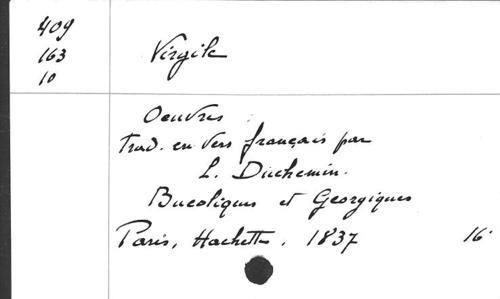 409
163
10
Virgile
Oeuvres
Trad. en vers français par
L. Duchemin.
Bucoliques et Georgiques
Paris, Hachette. 1837 16°